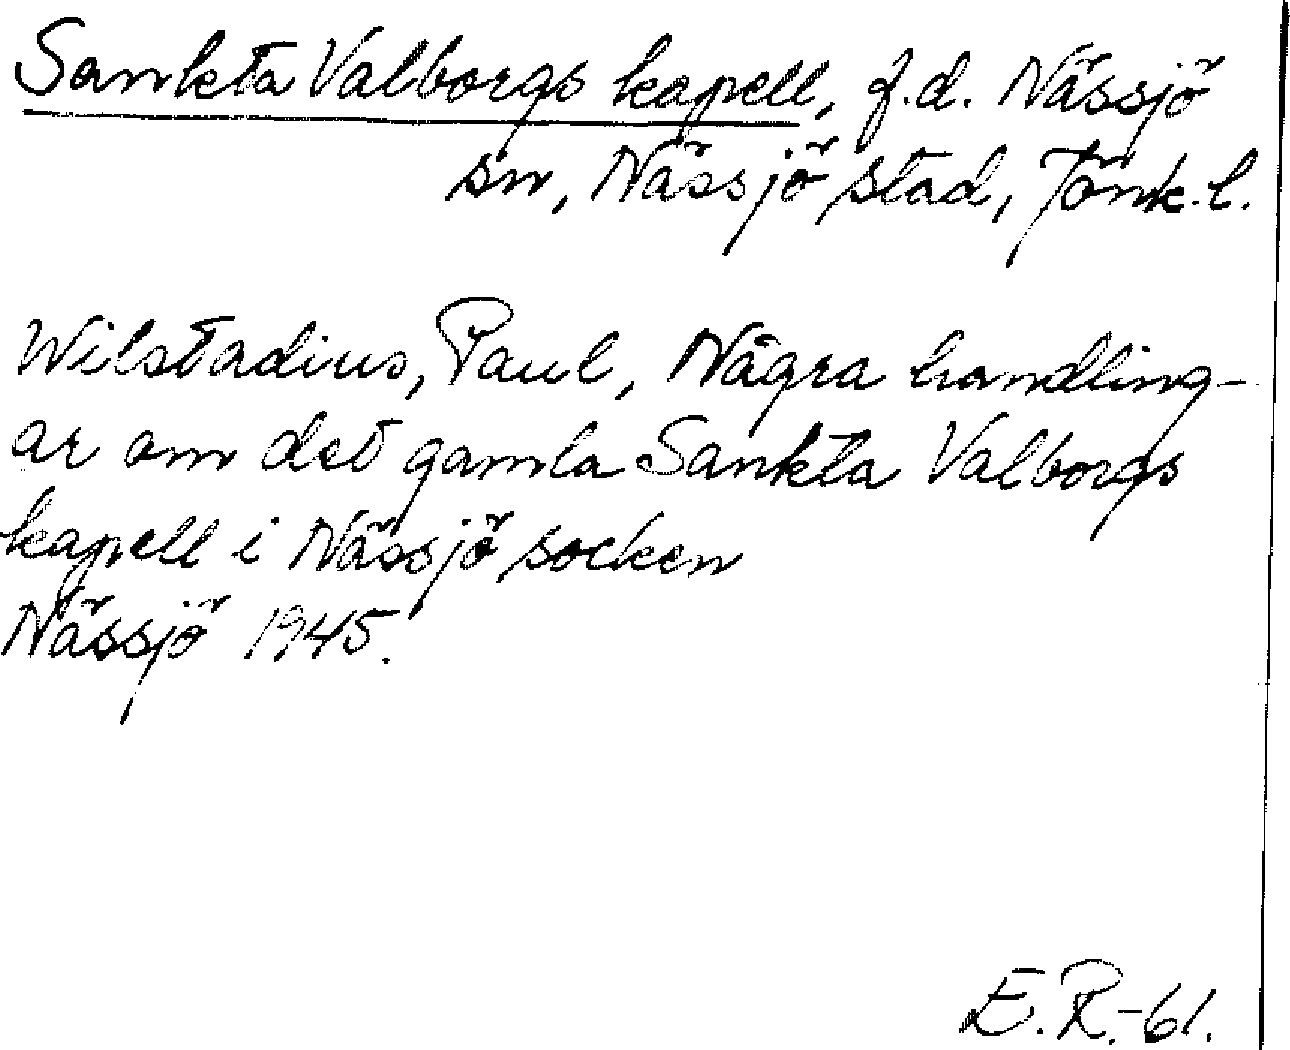 Sankta Valborgs kapell, f.d. Nässjö
sn, Nässjö stad, Jönk.l.
Wilstadius, Paul, Några handling-
ar om det gamla Sankta Valborgs
kapell i Nässjö socken
Nässjö 1945.
E.R.-61.